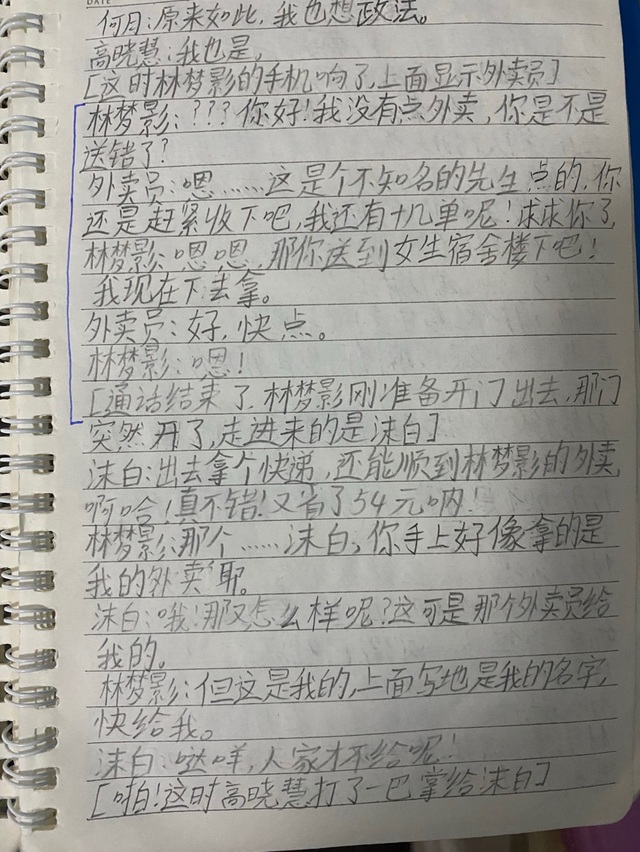 DATE
何月:原来如此,我也想政法。
高晓慧:我也是,
[这时林梦影的手机响了,上面显示外卖员]
林梦影:???你好!我没有点外卖,你是不是
送错了?
外卖员:嗯……这是个不知名的先生点的,你
还是赶紧收下吧,我还有十几单呢!求求你了,
林梦影:嗯嗯,那你送到女生宿舍楼下吧!
我现在下去拿。
外卖员:好,快点。
林梦影:嗯!
[通话结束了,林梦影刚准备开门出去,那门
突然开了,走进来的是沫白]
沫白:出去拿个快递,还能顺到林梦影的外卖
啊哈!真不错!又省了54元呐!
林梦影:那个……沫白,你手上好像拿的是
我的外卖耶。
沫白:哦!那又怎么样呢?这可是那个外卖员给
我的。
林梦影:但这是我的,上面写地是我的名字,
快给我。
沫白:哒咩,人家才不给呢!
[啪!这时高晓慧打了一巴掌给沫白]